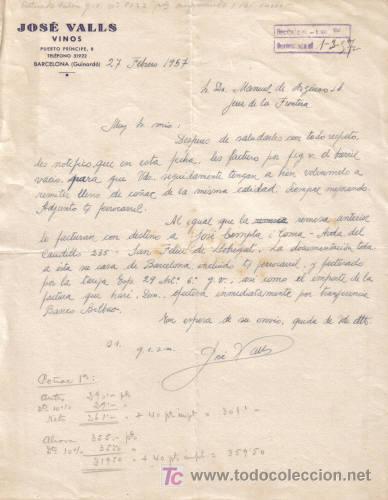 JOSÉ VALLS
VINOS
PUERTO PRÍNCIPE, 8
TELÉFONO 31922
BARCELONA (Guinardó)
27 Febrero 1957
1-3-57
S. Dn. Manuel de
Jerez de la Frontera
Muy Sr. mio:
Despues de saludarles con todo respeto,
les notifico, que en esta fecha, les facturo por p.g.v. el barril
vacio, para que Vds. seguidamente tengan a bien volvermelo a
remitir lleno de coñac de la misma calidad, siempre mejorando.
Adjunto tj ferrocarril.
Al igual que la remesa anterior
le facturan con destino a José Compla, Avda. del
Caudillo 235 - San Feliu de Llobregat. La documentación toda
a esta su casa de Barcelona, incluido tj ferrocarril, y facturado
por la tarifa Esp. 29 g.v., asi como el importe de la
factura que haré, efectiva inmediatamente por transferencia
Banco Bilbao.
En espera de su envio, queda de Vd. atto.
S.S. q.e.s.m.
José Valls
Antes 290'- pts
Dto 10% 29'-
Neto 261'- + 40 = 301'-
Ahora 355'- pts
Dto 10% 3550
31950 + 40 = 35950
TC www.todocoleccion.net